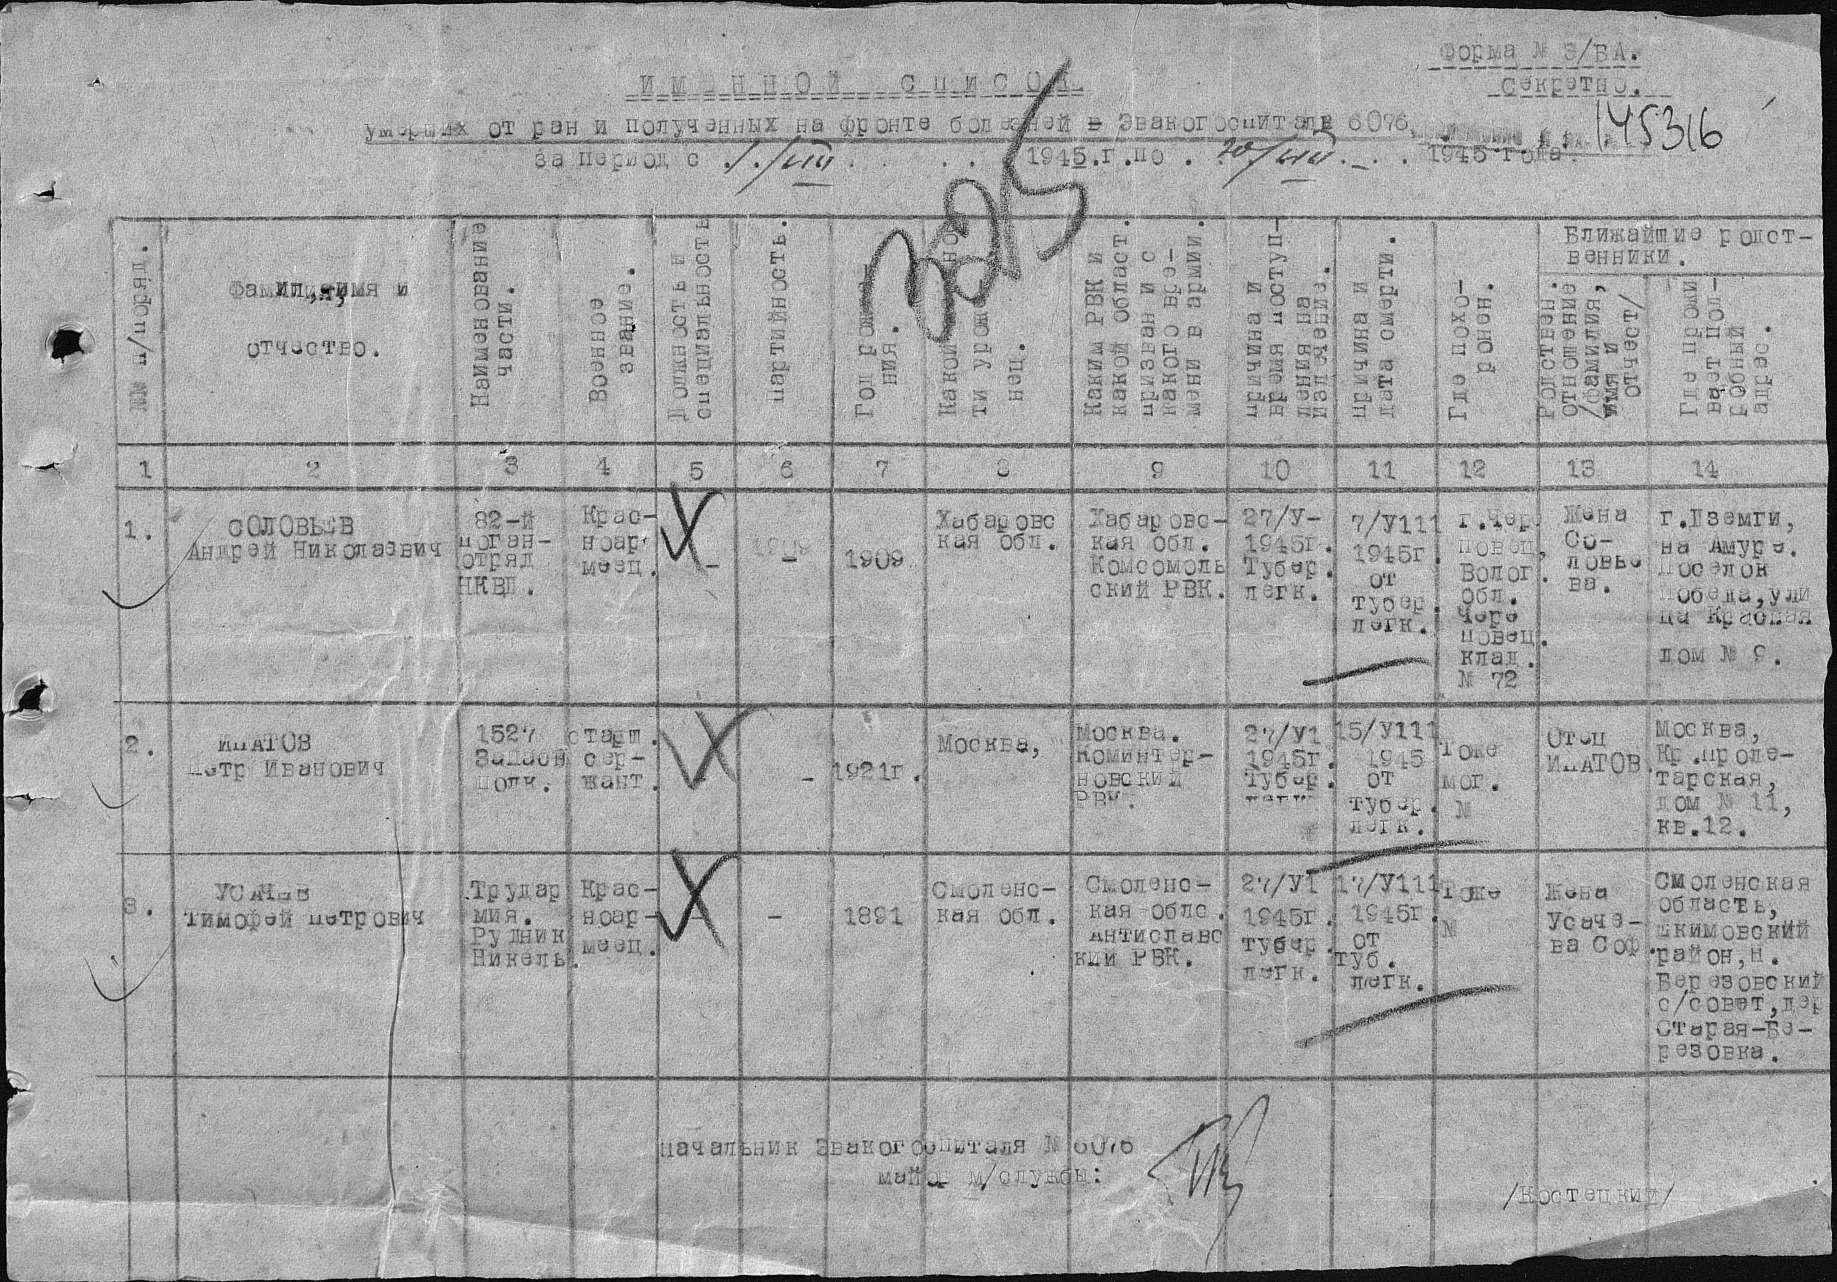 Форма № 3/БА.
Секретно.
ИМЕННОЙ СПИСОК
умерших от ран и полученных на фронте болезней в Эвакогоспитале 6076
145316
за период с 1./VIII . . . . 1945.г.по . 20/VIII . . . 1945.года.
3215
№№ п/поряд.
Фамилия, имя и
отчество.
Наименование
части.
Военное
звание.
Должность и
специальность
партийность.
Год рожде
ния.
Какой
ти уроже
нец.
Каким РВК и
какой област.
призван и с
какого вре-
мени в армии.
причина и
время поступ-
ления на
излечение.
причина и
дата смерти.
Где похо-
ронен.
Ближайшие родст-
венники.
Родствен.
отношение
/фамилия,
имя и
отчест/
Где прожи
вает под-
робный
адрес.
1 2 3 4 5 6 7 8 9 10 11 12 13 14
1.
СОЛОВЬЕВ
Андрей Николаевич
82-й
погран-
отряд
НКВД.
Крас-
ноар
меец.
-
-
1909
Хабаровс
кая обл.
Хабаровс-
кая обл.
Комсомоль
ский РВК.
27/У-
1945г.
Тубер.
легк.
7/У111
1945г.
от
тубер.
легк.
г.Чер
повец,
Волог.
обл.
Чере
повец.
клад.
№ 72
Жена
Со-
ловье
ва.
г.Дземги,
на Амуре.
Поселок
Победа,ули
ца Красная
дом № 9.
2.
ИПАТОВ
Петр Иванович
1527
Запасн
полк.
старш.
сер-
жант.
-
1921г.
Москва,
Москва.
Коминтер-
новский
РВК.
27/У1
1945г.
Тубер.
легк.
15/У111
1945
от
тубер.
легк.
Тоже
мог.
№
Отец
ИПАТОВ.
Москва,
Кр.проле-
тарская,
дом № 11,
кв.12.
3.
УСАЧЕВ
Тимофей Петрович
Трудар
мия.
Рудник
Никель.
Крас-
ноар-
меец.
-
-
1891
Смоленс-
кая обл.
Смоленс-
кая облс.
Антиславс
кий РВК.
27/У1
1945г.
Тубер.
легк.
17/У111
1945г.
от
туб.
легк.
Тоже
№
Жена
Усаче-
ва Соф.
Смоленская
область,
район,н.
Березовский
с/совет,дер
Старая-Бе-
резовка.
Начальник Эвакогоспиталя № 6076
майор м/службы:
/Костецкий/